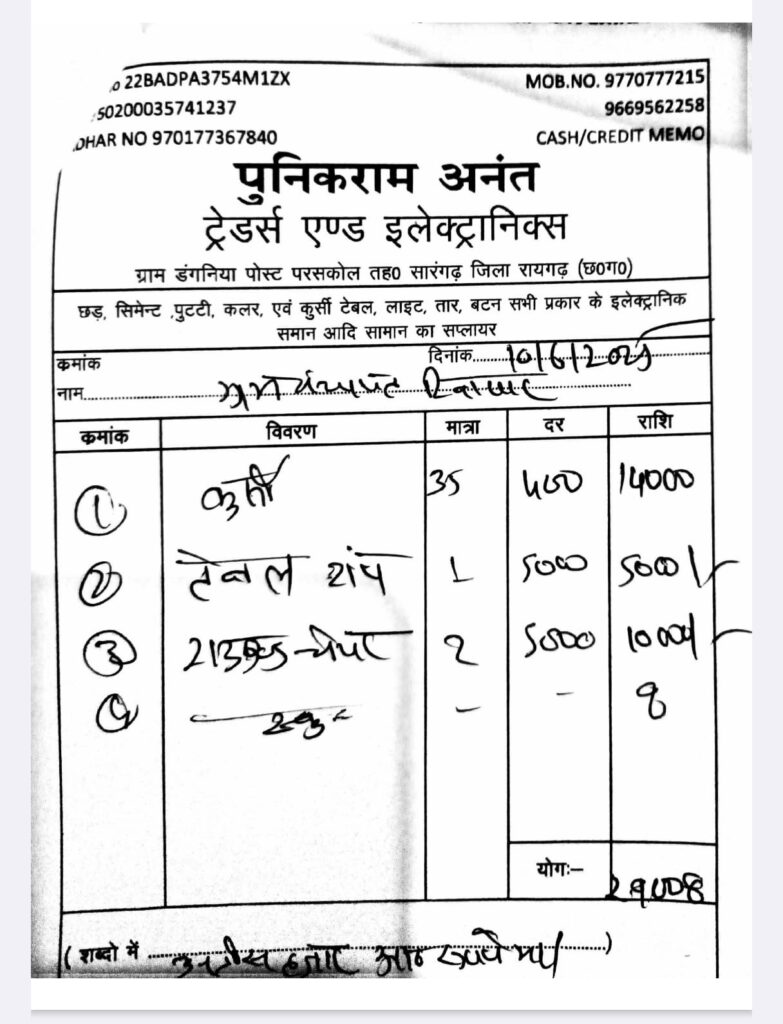 o 22BADPA3754M1ZX MOB.NO. 9770777215
50200035741237 9669562258
DHAR NO 970177367840 CASH/CREDIT MEMO
पुनिकराम अनंत
ट्रेडर्स एण्ड इलेक्ट्रानिक्स
ग्राम डंगनिया पोस्ट परसकोल तह0 सारंगढ़ जिला रायगढ़ (छ0ग0)
छड़, सिमेन्ट ,पुटटी, कलर, एवं कुर्सी टेबल, लाइट, तार, बटन सभी प्रकार के इलेक्ट्रानिक
समान आदि सामान का सप्लायर
कमांक दिनांक 10/6/2025
नाम
कमांक विवरण मात्रा दर राशि
1 कुर्सी 35 400 14000
2 टेबल 1 5000 5000/-
3 2 5000 10000/-
4 - - 8
योगः– 29008
(शब्दो में उन्तीस हजार आठ रूपये मा)